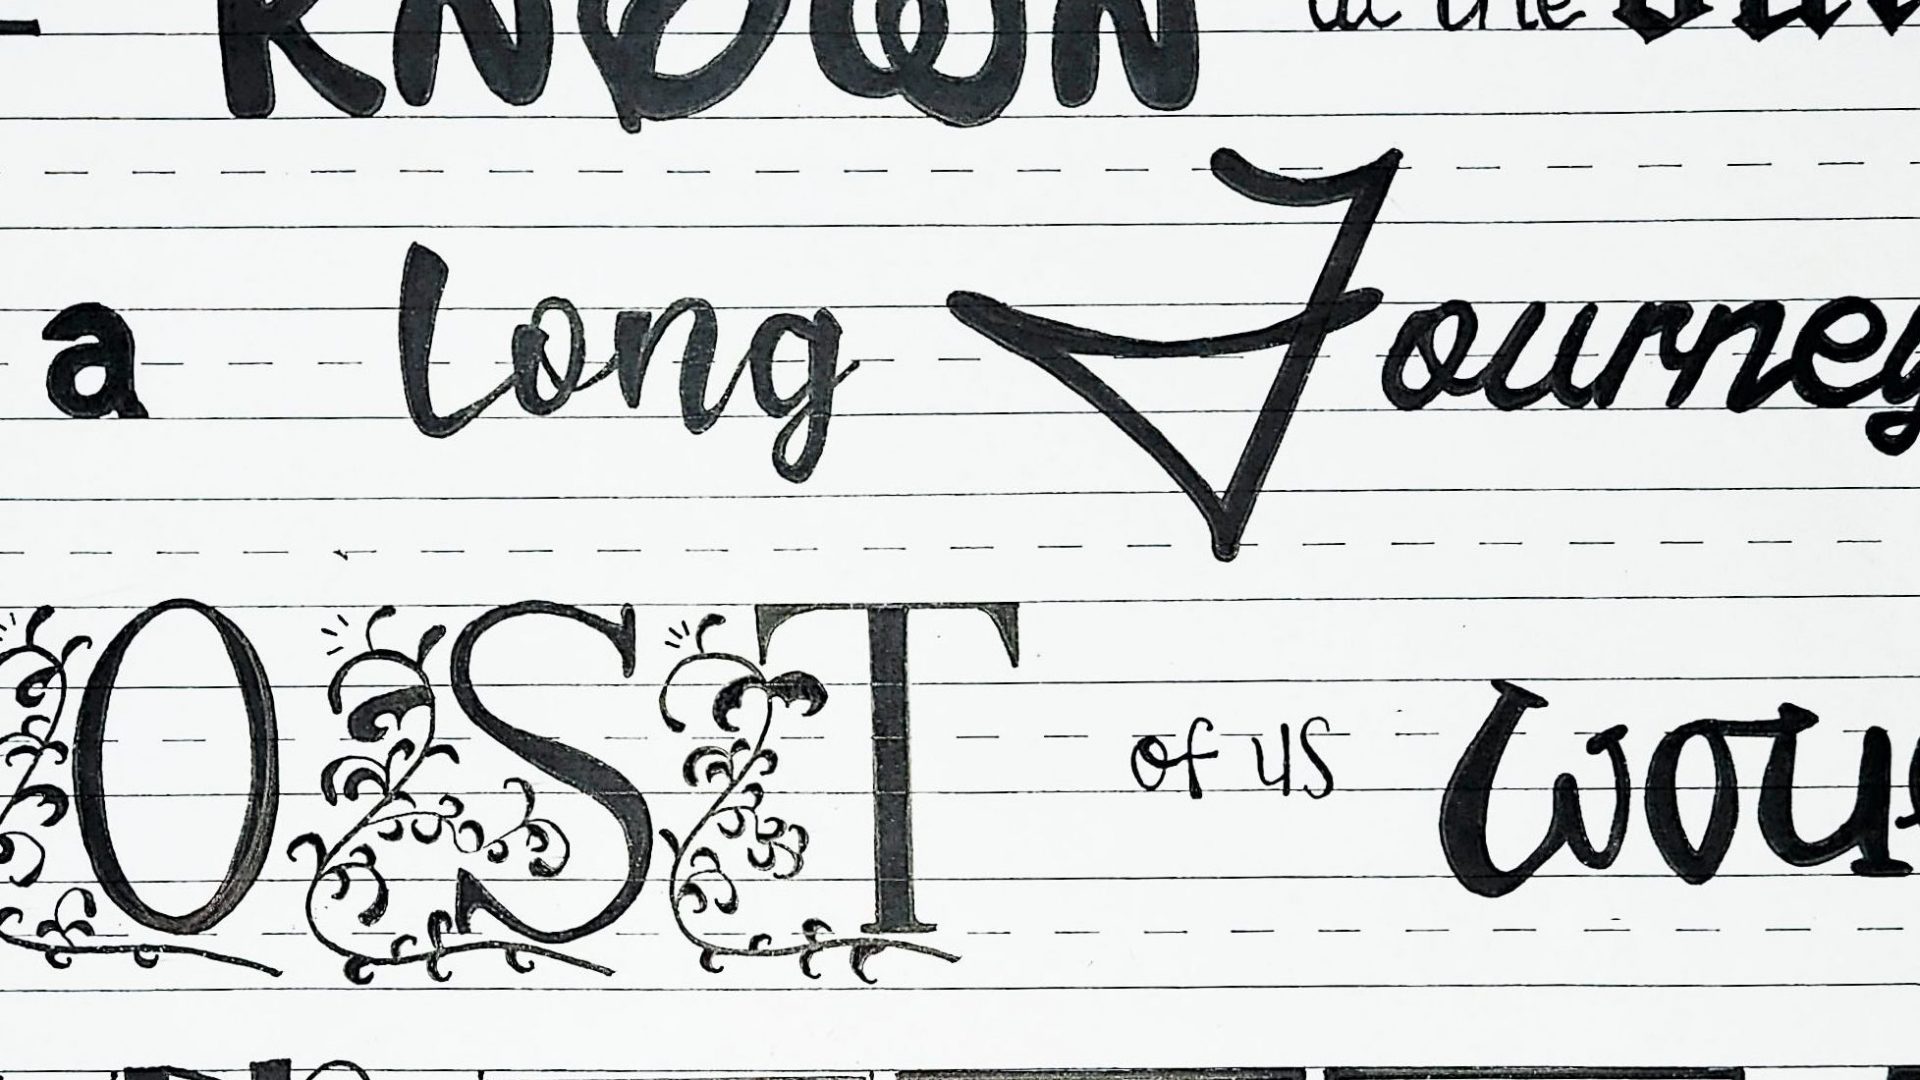 KNOWN at the
a long Journey
OST of us wou